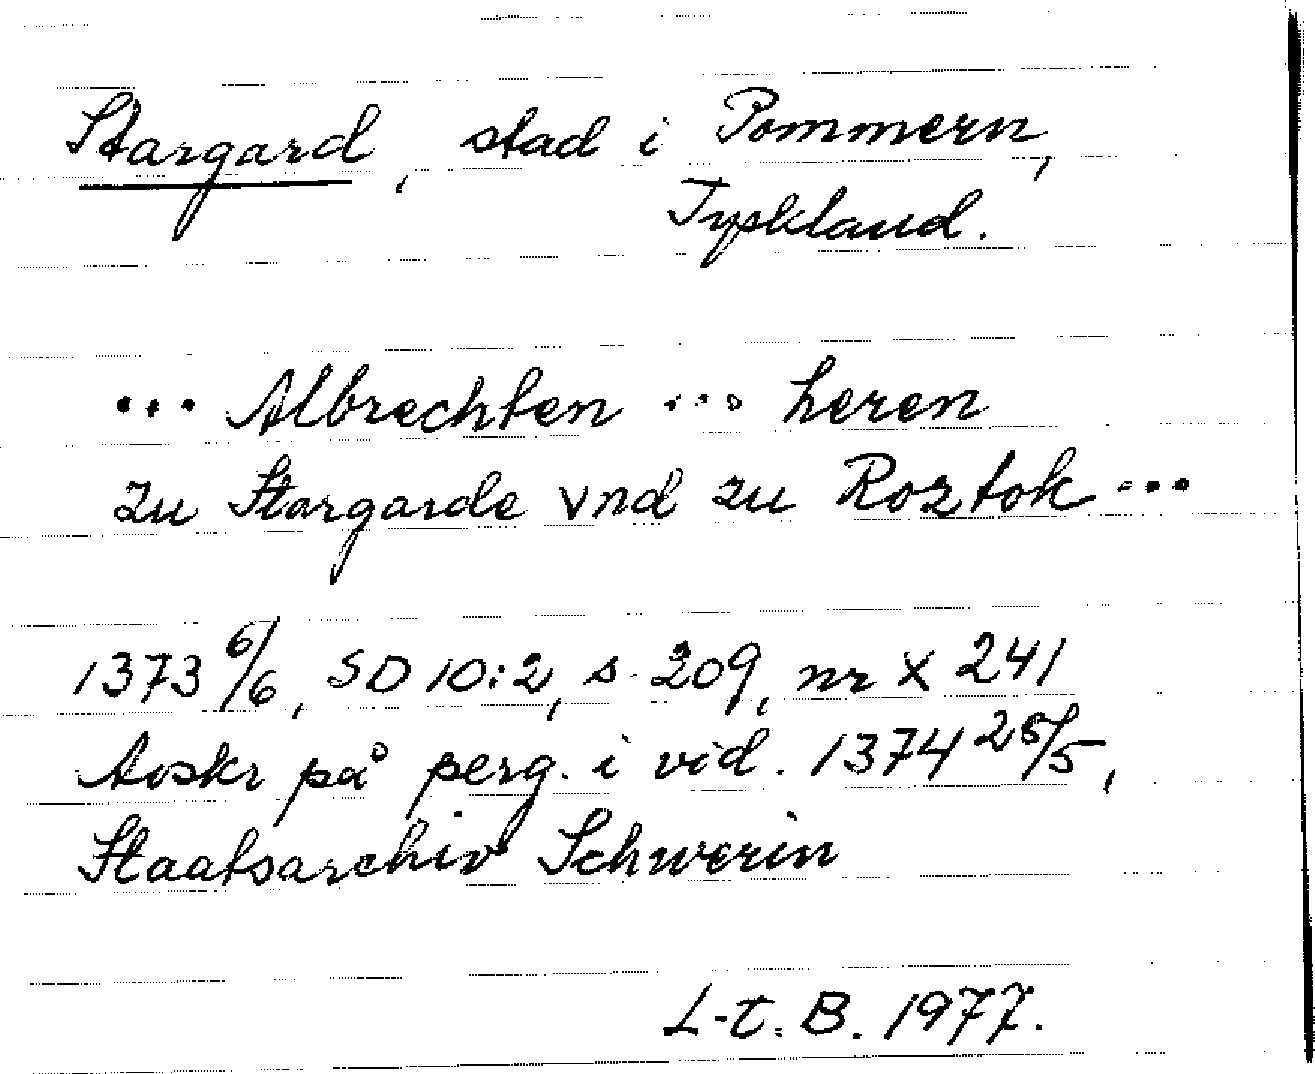 Stargard, stad i Pommern,
Tyskland.
... Albrechten ... heren
zu Stargarde vnd zu Roztok ...
1373 6/6, SD 10:2, s. 209, nr X 241
Avskr på perg. i vid. 1374 25/5,
Staatsarchiv Schwerin
L-t. B. 1977.